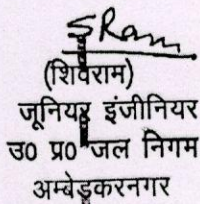 SRam
(शिवराम)
जूनियर इंजीनियर
उ0 प्र0 जल निगम
अम्बेडकरनगर